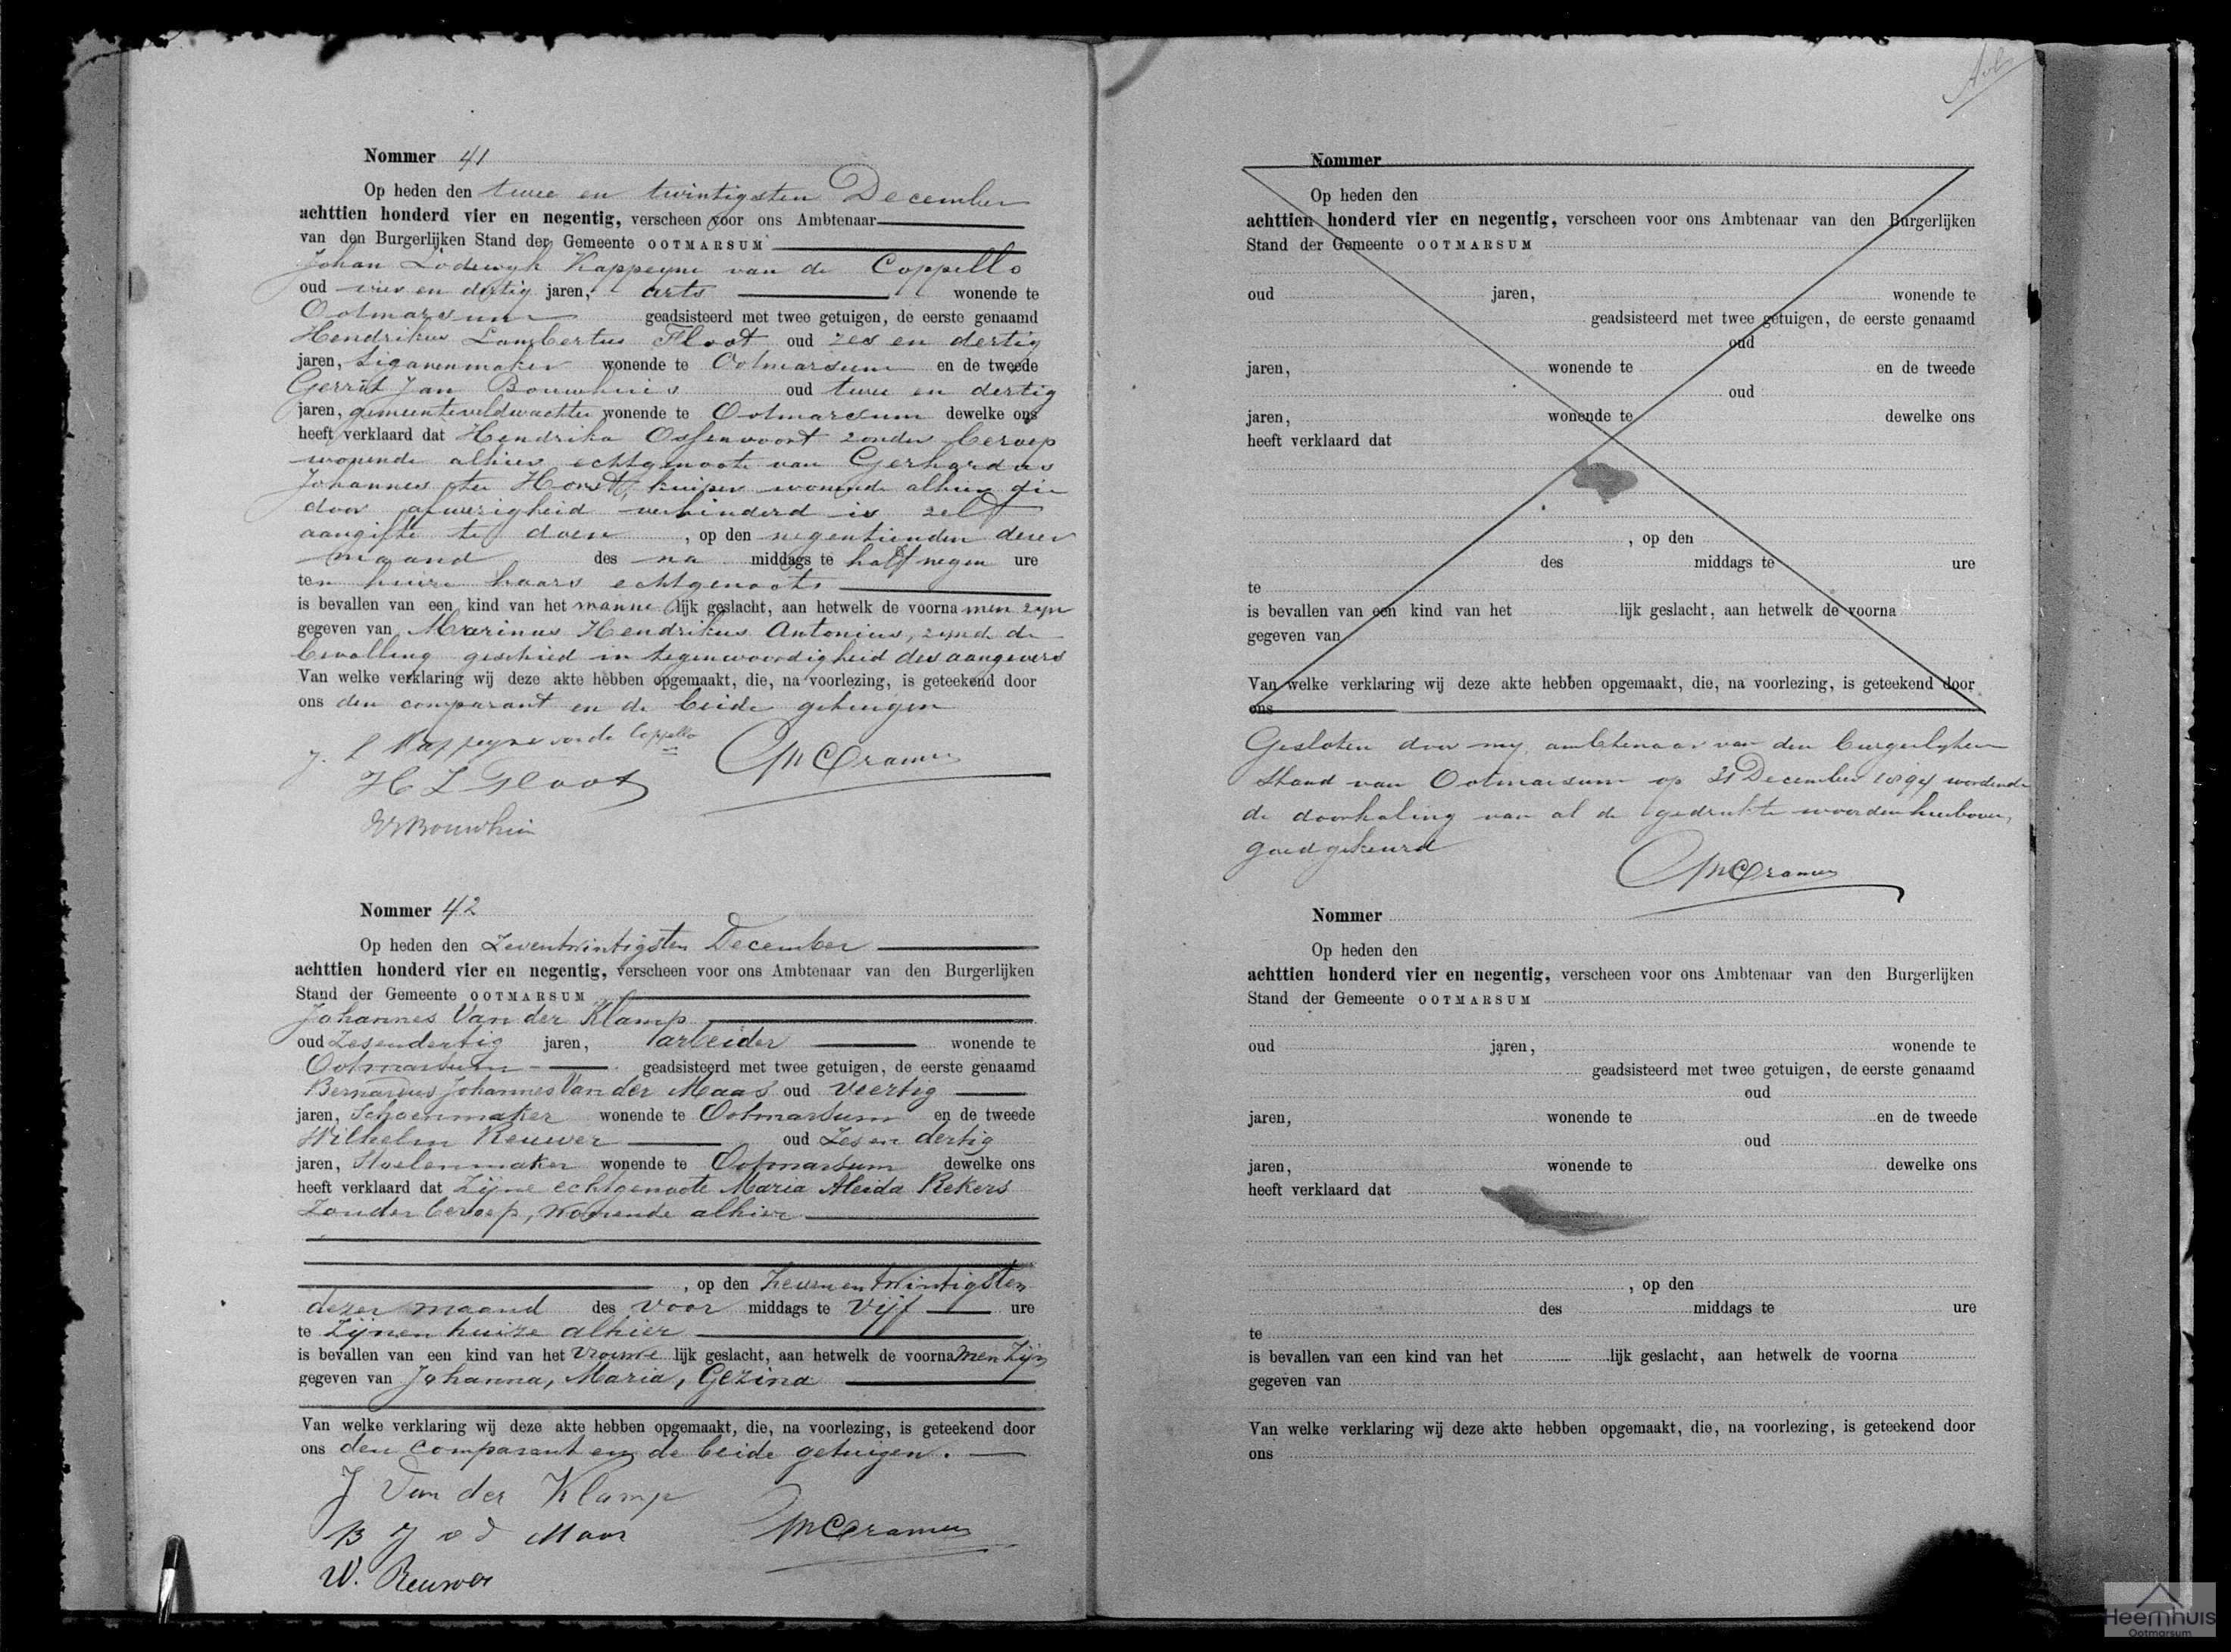 Nommer 41
Op heden den twee en twintigsten December
achttien honderd vier en negentig, verscheen voor ons Ambtenaar
van den Burgerlijken Stand der Gemeente OOTMARSUM
Johan Lodewyk Kappeyne van de Coppello
oud vier en dertig jaren, arts wonende te
Ootmarsum geadsisteerd met twee getuigen, de eerste genaamd
Hendrikus Lambertus Floot oud zes en dertig
jaren, Sigarenmaker wonende te Ootmarsum en de tweede
Gerrit Jan Bouwhuis oud twee en dertig
jaren, gemeenteveldwachter wonende te Ootmarsum dewelke ons
heeft verklaard dat Hendrika Ossenvoort zonder beroep
wonende alhier echtgenoote van Gerhardus
Johannes ter Horst, kuiper wonende alhier die
door afwezigheid verhinderd is zelf
aangifte te doen, op den negentienden dezer
maand des na middags te half negen ure
ten huize haars echtgenoots
is bevallen van een kind van het manne lijk geslacht, aan hetwelk de voorna men zyn
gegeven van Marinus Hendrikus Antonius, zynde de
bevalling geschied in tegenwoordigheid des aangevers
Van welke verklaring wij deze akte hebben opgemaakt, die, na voorlezing, is geteekend door
ons den comparant en de beide getuigen
J. L Kappeyne van de Coppello
H L Floot
Bouwhuis
Cramer
Nommer 42
Op heden den Zeventwintigsten December
achttien honderd vier en negentig, verscheen voor ons Ambtenaar van den Burgerlijken
Stand der Gemeente OOTMARSUM
Johannes Van der Klamp
oud Zesendertig jaren, arbeider wonende te
Ootmarsum geadsisteerd met twee getuigen, de eerste genaamd
Bernardus Johannes Van der Maas oud Veertig
jaren, Schoenmaker wonende te Ootmarsum en de tweede
Wilhelm Reuwer oud Zes en dertig
jaren, Stoelenmaker wonende te Ootmarsum dewelke ons
heeft verklaard dat Zijne echtgenoote Maria Aleida Rekers
Zonder beroep, wonende alhier
, op den Zevenentwintigsten
dezer maand des Voor middags te Vijf ure
te Zijnen huize alhier
is bevallen van een kind van het Vrouwe lijk geslacht, aan hetwelk de voorna men Zijn
gegeven van Johanna, Maria, Gezina
Van welke verklaring wij deze akte hebben opgemaakt, die, na voorlezing, is geteekend door
ons den comparant en de beide getuigen.
J Van der Klamp
B J v d Maas
Cramer
W. Reuwer
Nommer
Op heden den
achttien honderd vier en negentig, verscheen voor ons Ambtenaar van den Burgerlijken
Stand der Gemeente OOTMARSUM
oud jaren, wonende te
geadsisteerd met twee getuigen, de eerste genaamd
oud
jaren, wonende te en de tweede
oud
jaren, wonende te dewelke ons
heeft verklaard dat
, op den
des middags te ure
te
is bevallen van een kind van het lijk geslacht, aan hetwelk de voorna
gegeven van
Van welke verklaring wij deze akte hebben opgemaakt, die, na voorlezing, is geteekend door
ons
Gesloten door my, ambtenaar van den burgerlyken
Stand van Ootmarsum op 31 December 1894 wordende
de doorhaling van al de gedrukte woorden hierboven,
goedgekeurd
Cramer
Nommer
Op heden den
achttien honderd vier en negentig, verscheen voor ons Ambtenaar van den Burgerlijken
Stand der Gemeente OOTMARSUM
oud jaren, wonende te
geadsisteerd met twee getuigen, de eerste genaamd
oud
jaren, wonende te en de tweede
oud
jaren, wonende te dewelke ons
heeft verklaard dat
, op den
des middags te ure
te
is bevallen van een kind van het lijk geslacht, aan hetwelk de voorna
gegeven van
Van welke verklaring wij deze akte hebben opgemaakt, die, na voorlezing, is geteekend door
ons
Heemhuis
Ootmarsum